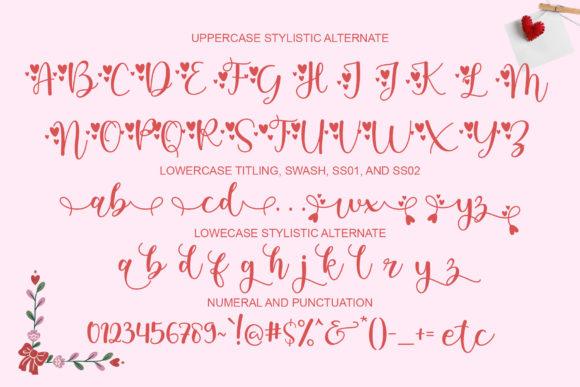 UPPERCASE STYLISTIC ALTERNATE
A B C D E F G H I J K L M
N O P Q R S T U V W X Y Z
LOWERCASE TITLING, SWASH, SS01, AND SS02
ab cd ... wx yz
LOWECASE STYLISTIC ALTERNATE
a b d f g h j k l r y z
NUMERAL AND PUNCTUATION
0123456789~`!@#$%^&*()-_+= etc